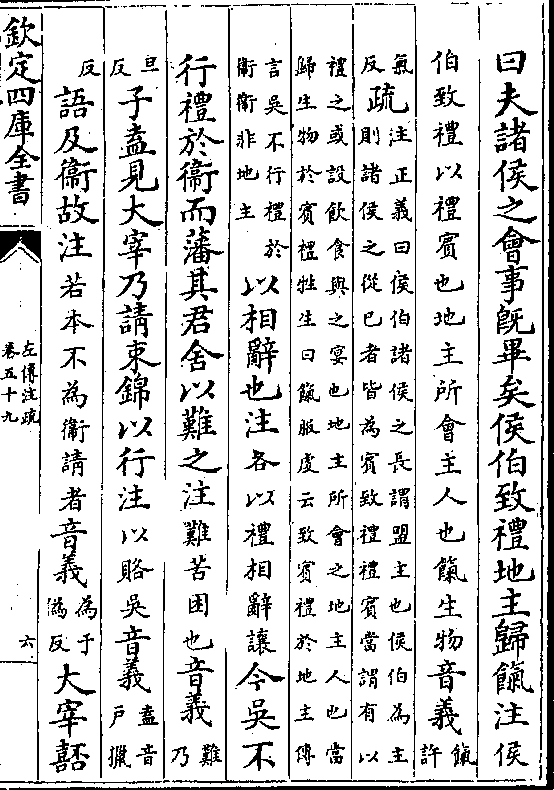 曰夫諸侯之會事既畢矣侯伯致禮地主歸餼注侯
伯致禮以禮賓也地主所會主人也餼生物音義餼許
氣反疏注正義曰侯伯諸侯之長謂盟主也侯伯為主
則諸侯之從已者皆為賓致禮禮賓當謂有以
禮之或設飲食與之宴也地主所會之地主人也當
歸生物於賓禮牲生曰餼服虔云致賓禮於地主傳
言吳不行禮於衞衞非地主以相辭也注各以禮相辭讓今吳不
行禮於衞而藩其君舍以難之注難苦困也音義難乃
旦反子盍見大宰乃請束錦以行注以賂吳音義盍音戶獵
反語及衞故注若本不為衞請者音義為于偽反大宰嚭
欽定四庫全書
左傳注疏
卷五十九
六